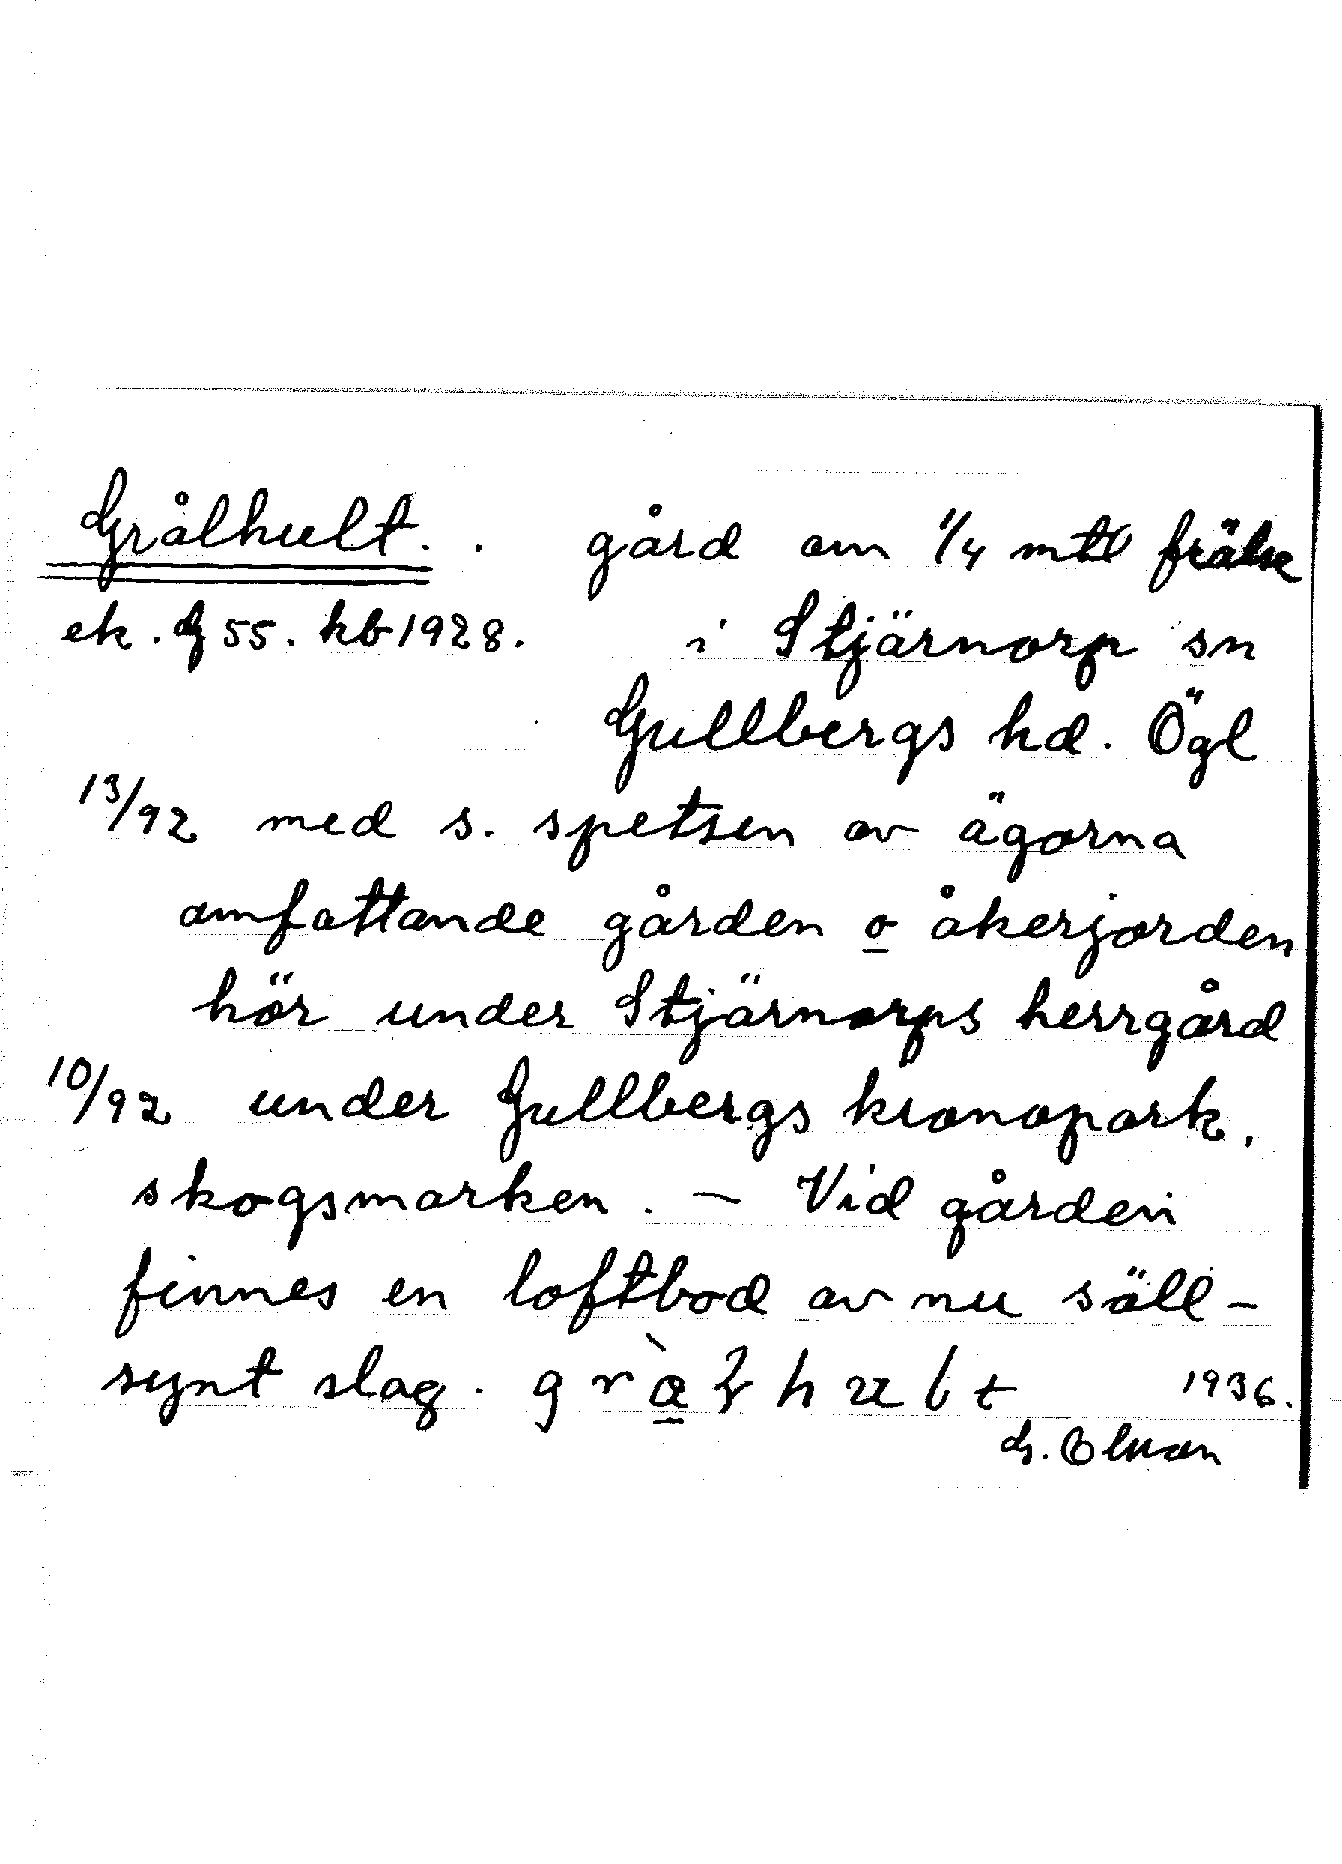 Grålhult. . gård om 1/4 mtl frälse
ek. 55. kb 1928. i Stjärnorp sn
Gullbergs hd. Ögl
13/92 med s. spetsen av ägorna
omfattande gården o åkerjorden
hör under Stjärnorps herrgård
10/92 under Gullbergs kronopark.
skogsmarken. — Vid gården
finnes en loftbod av nu säll-
synt slag. 1936.